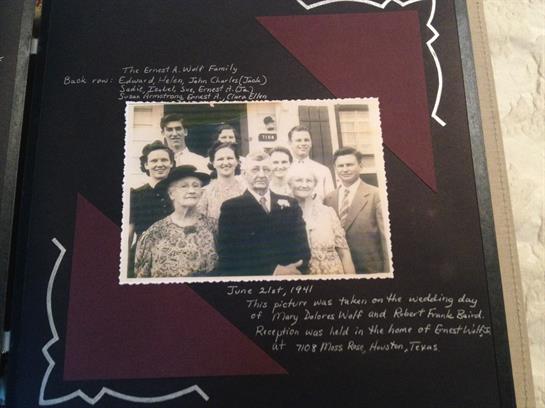 The Ernest A. Wolf Family
Back row: Edward, Helen, John Charles (Jack)
Sadie, Isabel, Sue, Ernest A. (Jr.)
Susan Armstrong, Ernest A., Clara Ellen
7108
June 21st, 1941
This picture was taken on the wedding day
of Mary Dolores Wolf and Robert Frank Baird.
Reception was held in the home of Ernest Wolf,
at 7108 Moss Rose, Houston, Texas.